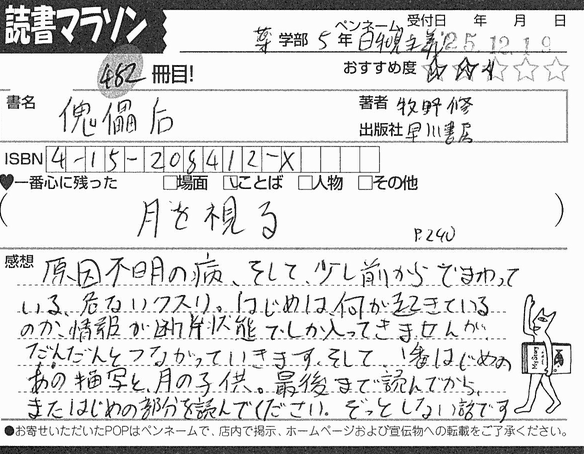 読書マラソン
薬学部 5年 ペンネーム 日和見主義 受付日 年 月 日
25.12.19
482冊目!
おすすめ度 ☆☆☆☆☆
書名 傀儡后
著者 牧野修
出版社 早川書房
ISBN 4-15-208412-X
♥一番心に残った □場面 ☑ことば □人物 □その他
(月を視る P.240)
感想 原因不明の病、そして、少し前からでまわって
いる、危ないクスリ。はじめは、何が起きている
のか、情報が断片状態でしか入ってきませんが、
だんだんとつながっていきます。そして、一番はじめの
あの描写と、月の子供。最後まで読んでから、
またはじめの部分を読んでください。ぞっとしない話です
●お寄せいただいたPOPはペンネームで、店内で掲示、ホームページおよび宣伝物への転載をご了承ください。